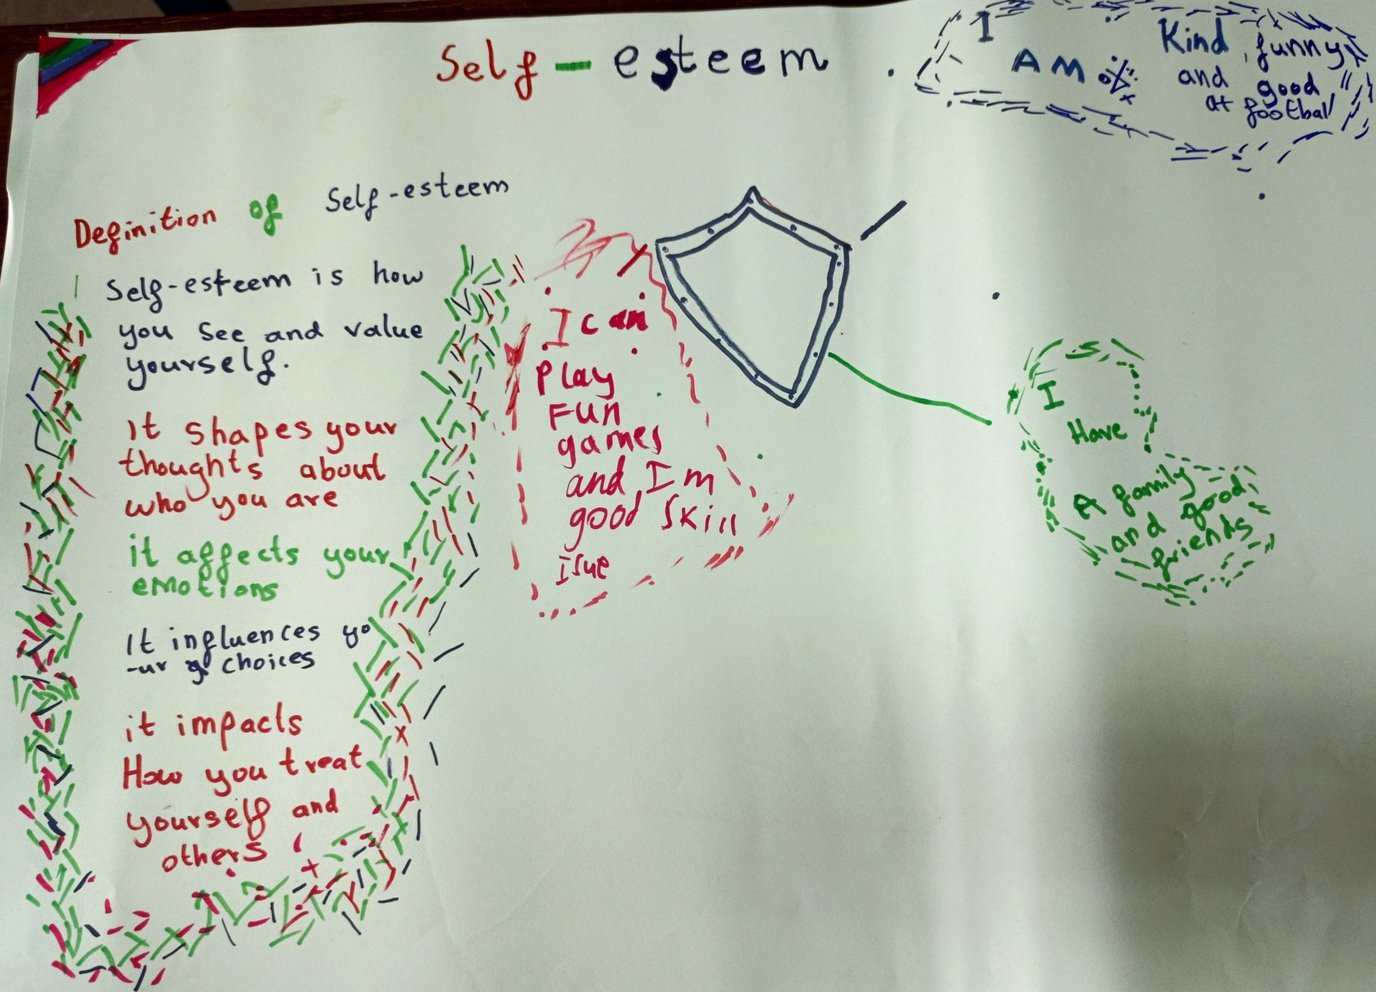 Self-esteem
I
AM
Kind, funny
and good
at football
Definition of Self-esteem
Self-esteem is how
you see and value
yourself.
It shapes your
thoughts about
who you are
it affects your
emotions
It influences yo
-ur choices
it impacts
How you treat
yourself and
others
I can
Play
Fun
games
and I m
good skill
isue
I
Have
A family
and good
friends